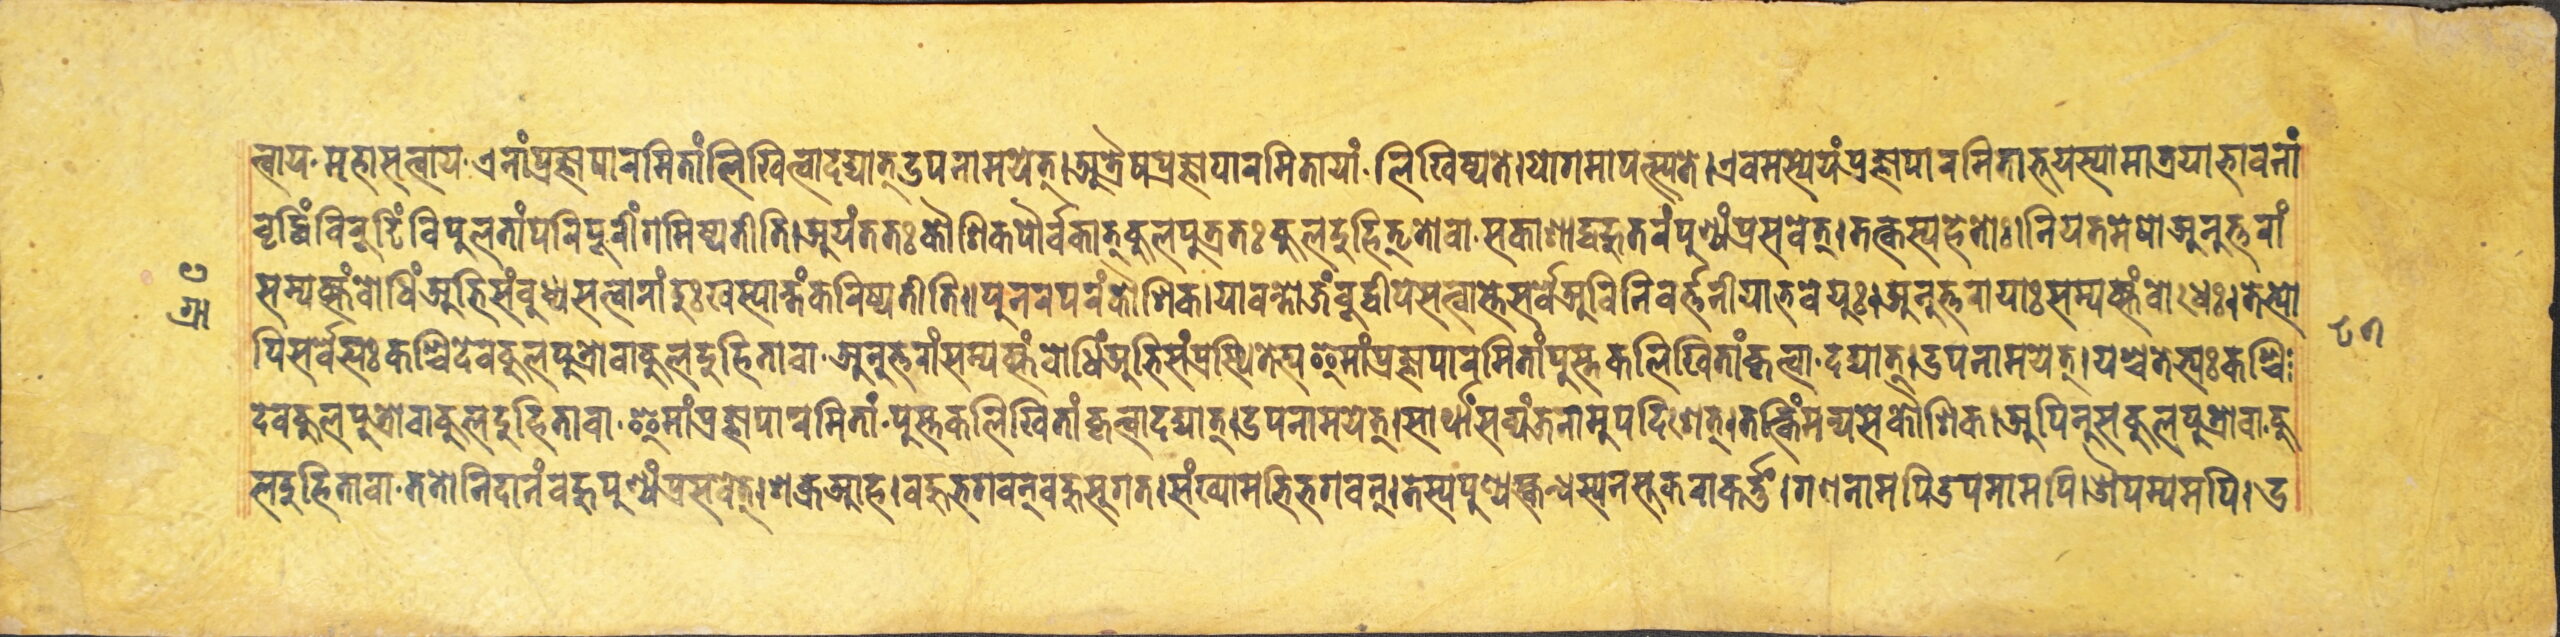 त्वाय·महासत्वाय·एनांप्रज्ञापारमितांलिखित्वादद्यात्उपनामयेत्।अत्रैषप्रज्ञापारमितायां·लिखिष्यते।योगमापत्स्यते।एवमस्येयंप्रज्ञापारमिताभूयस्यामात्रयाभावनां
वृद्धिंविरूढिंविपुलतांपरिपूरींगमिष्यतीति।अयंततःकौशिकपौर्वकात्कुलपुत्रतःकुलदुहितृतोवा·सकाशाद्बहुतरंपुण्यंप्रसवेत्।तत्कस्यहेतोः।नियतमेषोअनुत्तरां
सम्यक्संबोधिंअभिसंबुध्यसत्वानांदुःखस्यान्तंकरिष्यतीति॥पुनरपरंकौशिक।यावन्तोजंबूद्वीपेसत्वास्तेसर्वेअविनिवर्त्तनीयाभवेयुः।अनुत्तरायाःसम्यक्संबोधेः।तेभ्यो
पिसर्वेभ्यःकश्चिदेवकुलपुत्रोवाकुलदुहितावा·अनुत्तरांसम्यक्संबोधिंअभिसंप्रस्थितेभ्यइमांप्रज्ञापारमितांपुस्तकलिखितांकृत्वा·दद्यात्।उपनामयेत्।यश्चतेभ्यःकश्चि
देवकुलपुत्रोवाकुलदुहितावा·इमांप्रज्ञापारमितां·पुस्तकलिखितांकृत्वादद्यात्।उपनामयेत्।सार्थांसव्यंजनामुपदिशेत्।तत्किंमन्यसेकौशिक।अपिनुसकुलपुत्रोवा·कु
लदुहितावा·ततोनिदानंबहुपुण्यंप्रसवेत्।शक्रआह।बहुभगवन्बहुसुगत।संख्यामभिभगवन्।तस्यपुण्यस्कन्धस्यनसुकराकर्तुं।गणनामपिउपमामपि।औपम्यमपि।उ